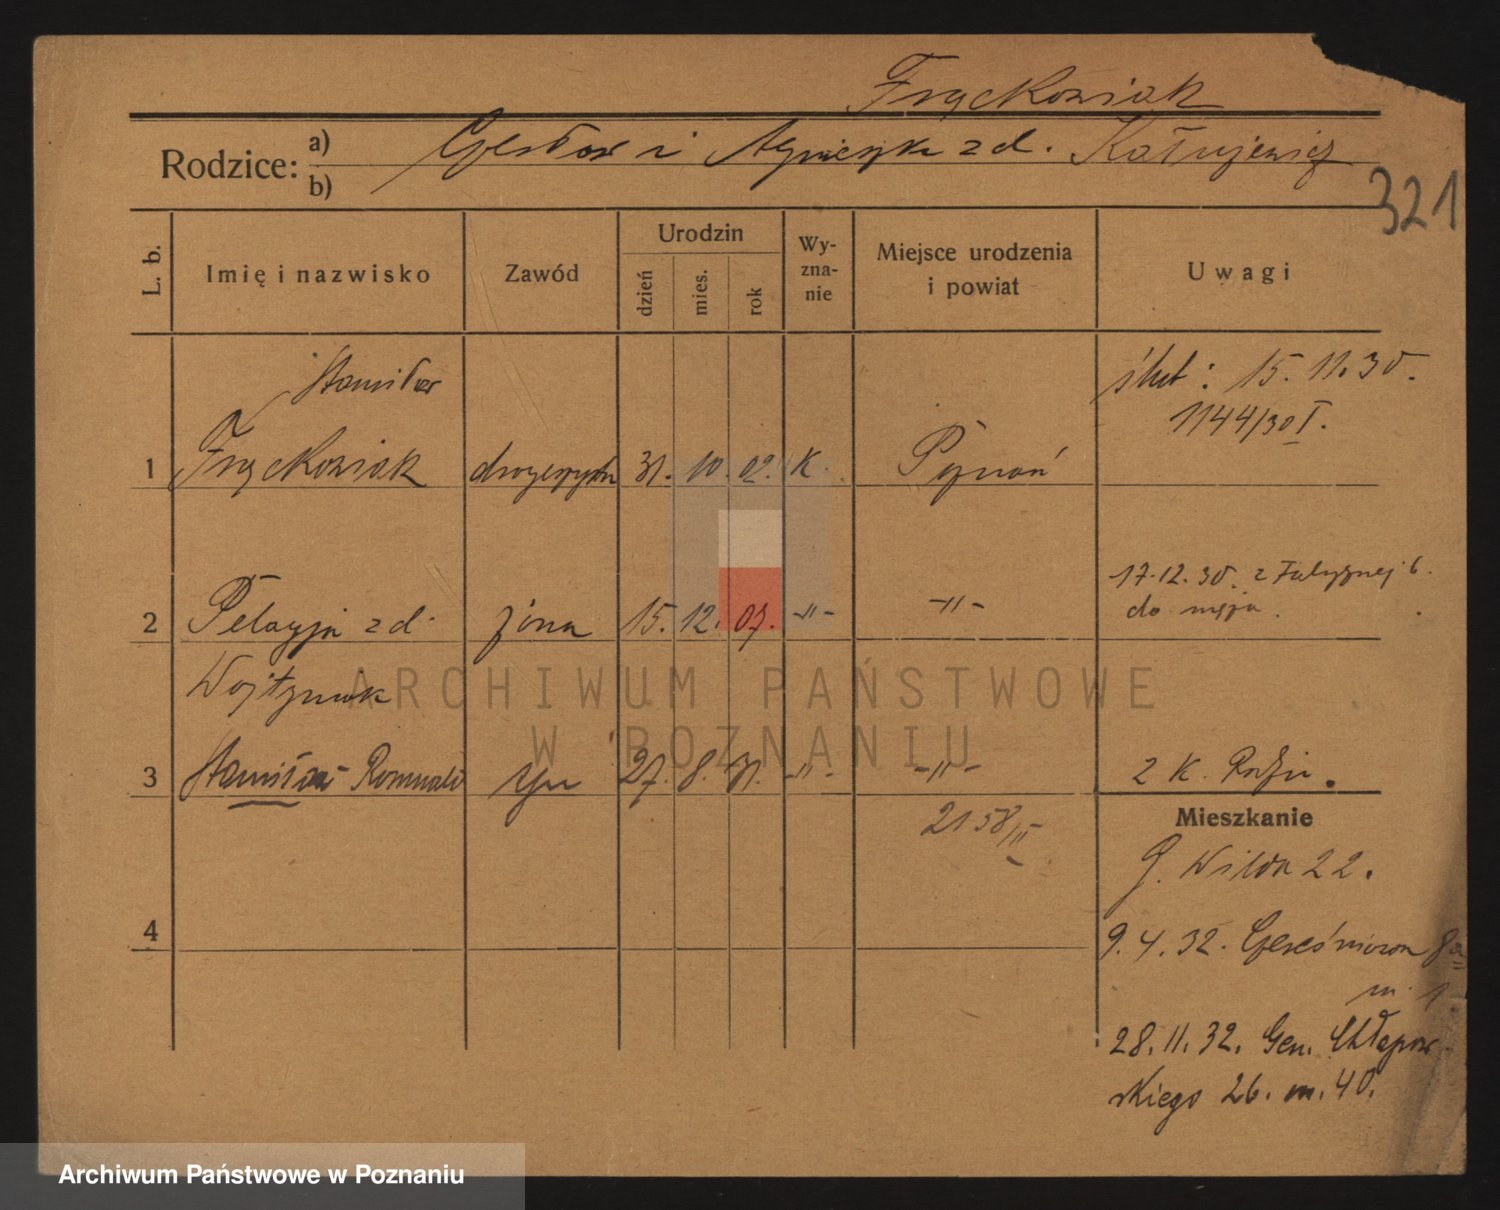 Frąckowiak
Rodzice: a) Czesław i Agnieszka z d.
b)
321
L. b.
Imię i nazwisko
Zawód
Urodzin
dzień
mies.
rok
Wy-
zna-
nie
Miejsce urodzenia
i powiat
Uwagi
Stanisław
1 Frąckowiak 31. 10. 02. K. Poznań
ślub: 15.11.30.
1144/30 I.
2 Pelagja z d. żona 15. 12. 07. -"- -"-
17.12.30. z
do męża.
Wojtyniak
3 Stanisław Romuald syn 27. 8. 31. -"- -"-
2158/II
2 K.
Mieszkanie
G. Wilda 22.
4
9.4.32. Czesnikowska 8a
m. 1
28.11.32. Gen. Chłapow-
skiego 26. m. 40.
ARCHIWUM PAŃSTWOWE
W POZNANIU
Archiwum Państwowe w Poznaniu